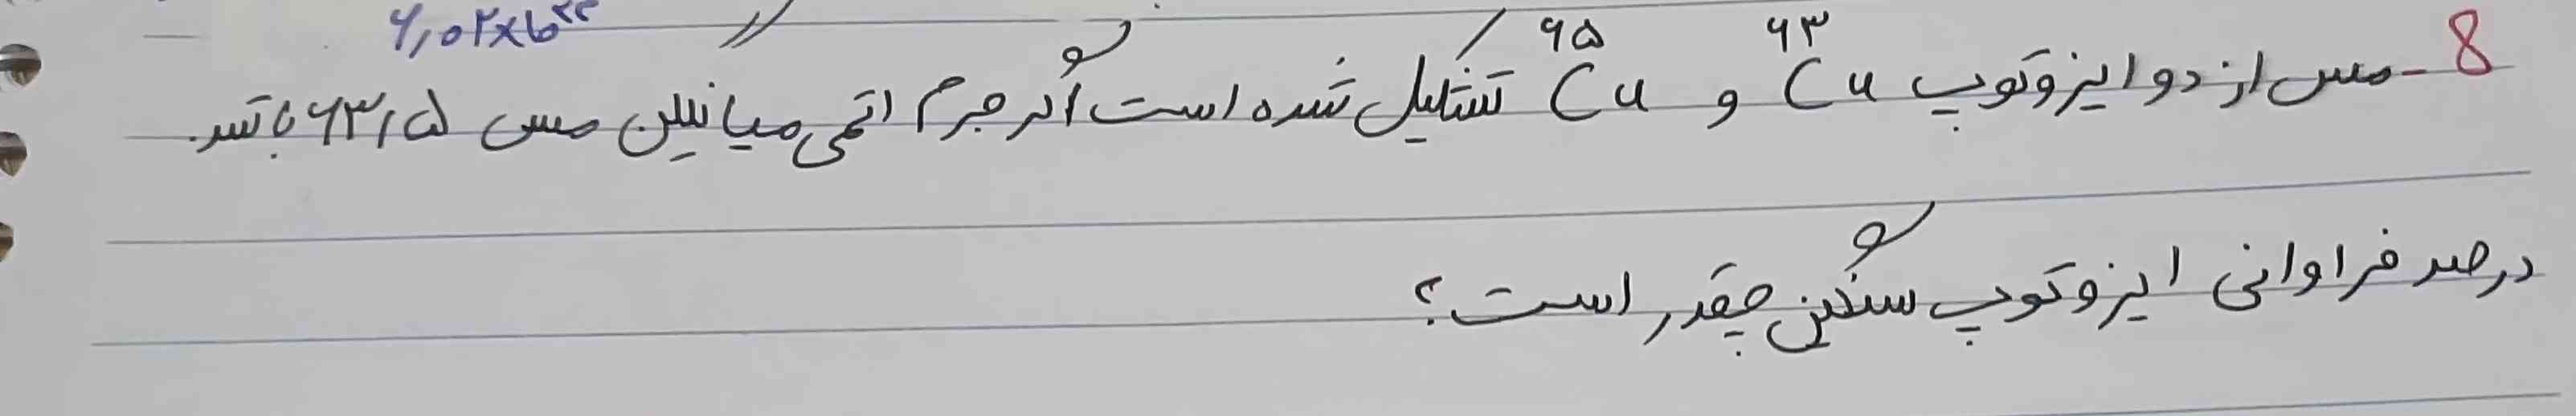 ۶٫۰۲×۱۰^۲۳
8- مس از دو ایزوتوپ ⁶³Cu و ⁶⁵Cu تشکیل شده است اگر جرم اتمی میانگین مس ۶۳٫۵ باشد.
درصد فراوانی ایزوتوپ سنگین چقدر است؟